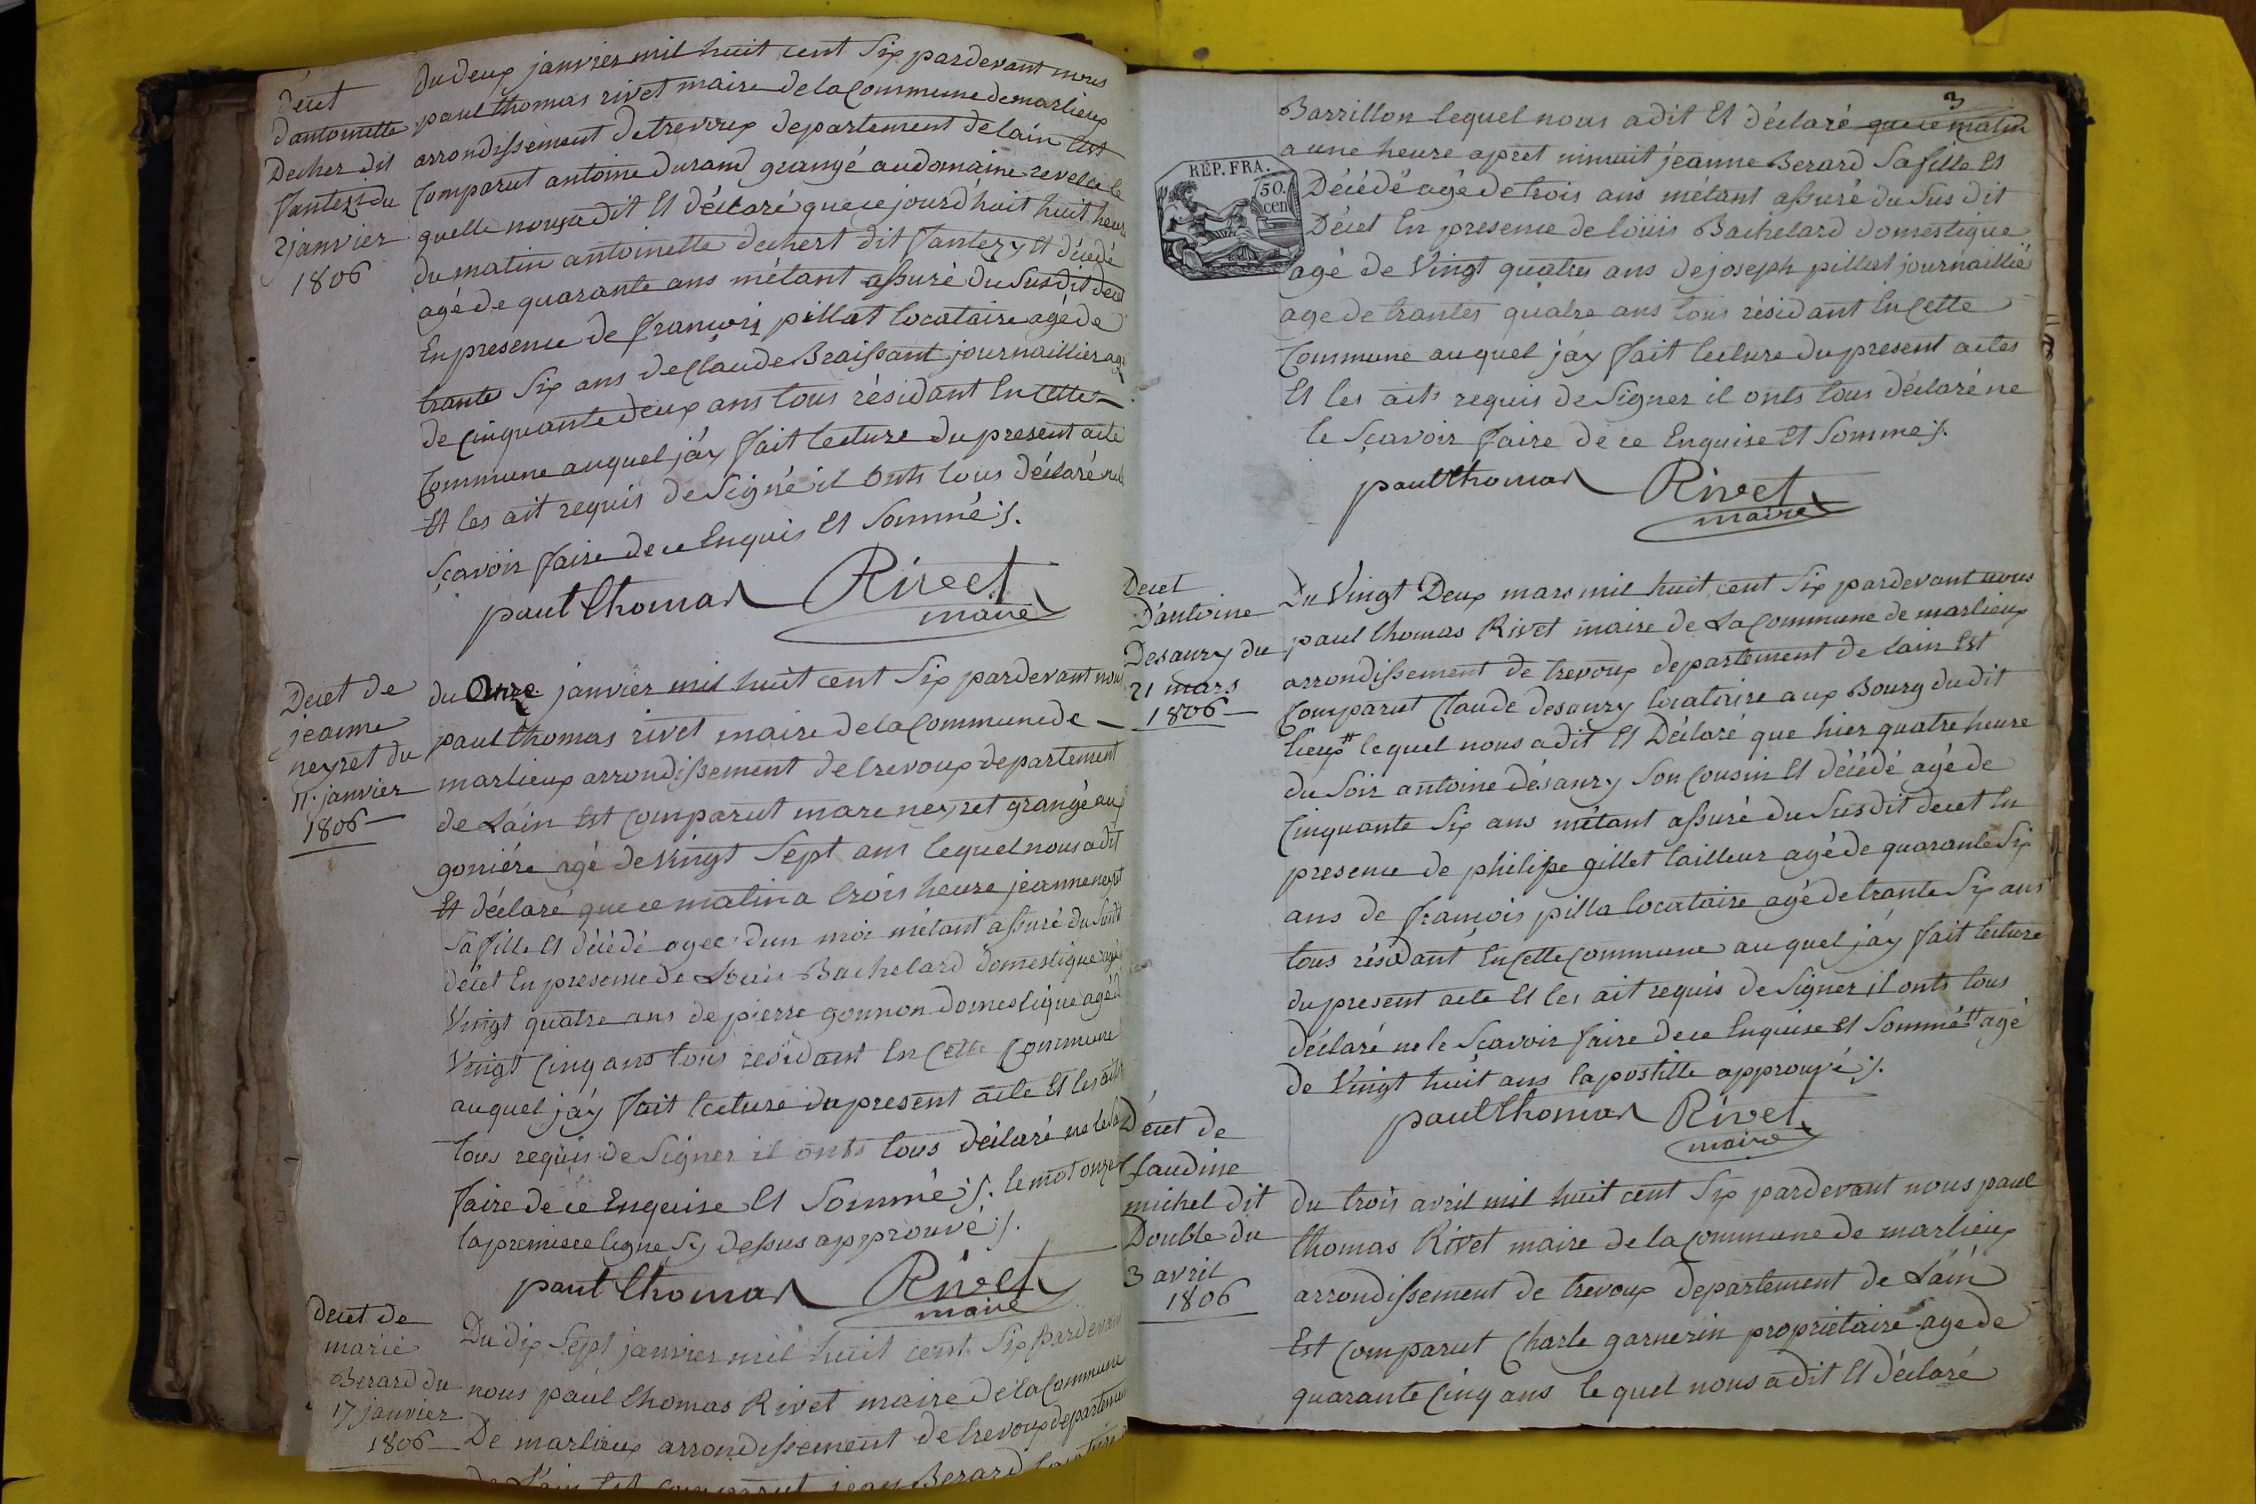 décet
dantoinette
Decher dit
fantezi du
2 janvier
1806
du deux janvier mil huit cent Six pardevant nous
paul thomas rivet maire de la Commune de marlieux
arrondissement de trevoux departement de lain Est
Comparut antoine durand grangé au domaine revel le
quelle nous a dit Et déclaré que ce jourd'huit huit heure
du matin antoinette dechert dit fantezy Et décédé
agé de quarante ans métant assuré du Susdit decet
En presence de françois pillat locataire agé de
trante Six ans de Claude Braissant journaillier agé
de Cinquante deux ans tous résidant En Cette
Commune auquel jáy fait lecture du present acte
Et les ait requis de Signé il onts tous déclaré ne le
Sçavoir faire de ce Enquis Et Sommé ./.
paul thomas Rivet
maire
Decet de
jeanne
neyret du
11 janvier
1806
du Onze janvier mil huit cent Six pardevant nous
paul thomas rivet maire de la Commune de
marlieux arrondissement de trevoux departement
de Lain Est Comparut marc neyret grangé aux
goniére agé de Vingt Sept ans lequel nous a dit
Et déclaré que ce matin a trois heure jeanne neyret
Sa fille Et décédé agee dun moi métant assuré du Susdit
décet En presence de Louis Bachelard domestique agé
Vingt quatre ans de pierre gonnon domestique agé de
Vingt Cinq ans tous residant En Cette Commune
auquel jáy fait lecture du present acte Et les ait
tous requis de Signer il onts tous déclaré ne le
faire de ce Enquise Et Sommé ./. le mot onze
la premiere ligne Sy dessus approuvé ./.
paul thomas Rivet
maire
Decet de
marie
Berard du
17 janvier
1806
Du dix Sept janvier mil huit cent Six pardevant
nous paul thomas Rivet maire de la Commune
De marlieux arrondissement de trevoux departement
de Lain Est Comparut jean Berard
3
Barrillon lequel nous a dit Et déclaré que ce matin
a une heure apret minuit jeanne Berard Sa fille Et
Décédé agé de trois ans metant assuré du Sus dit
Décet En presence de loüis Bachelard domestique
agé de Vingt quatres ans de joseph pillat journaillié
age de trantes quatre ans tous résidant En Cette
Commune auquel jáy fait lecture du present actes
Et les aits requis de Signer il onts tous déclaré ne
le Sçavoir faire de ce Enquise Et Somme ./.
paul thomas Rivet
maire
RÉP. FRA.
50.
cen.
Decet
D'antoine
Desaury du
21 mars
1806
Du Vingt Deux mars mil huit cent Six pardevant nous
paul thomas Rivet maire de La Commune de marlieux
arrondissement de trevoux departement de lain Est
Comparut Claude desaury locataire aux Bourg du dit
lieux # lequel nous a dit Et Déclaré que hier quatre heure
du Soir antoine désaury Son Cousin Et décédé agé de
Cinquante Six ans métant assuré du Susdit decet En
presence de philipe gillet tailleur agé de quarante Six
ans de françois pilla locataire agé de trante Six ans
tous résidant En Cette Commune auquel jáy fait lecture
du present acte Et les ait requis de Signer il onts tous
déclaré ne le Sçavoir faire de ce Enquise Et Sommé # agé
de Vingt huit ans lapostille approuvé ./.
paul thomas Rivet
maire
Décet de
Claudine
michel dit
Double du
3 avril
1806
du trois avril mil huit cent Six pardevant nous paul
thomas Rivet maire de la Commune de marlieux
arrondissement de trevoux departement de Láin
Est Comparut Charle garnerin propriétaire age de
quarante Cinq ans le quel nous a dit Et déclaré